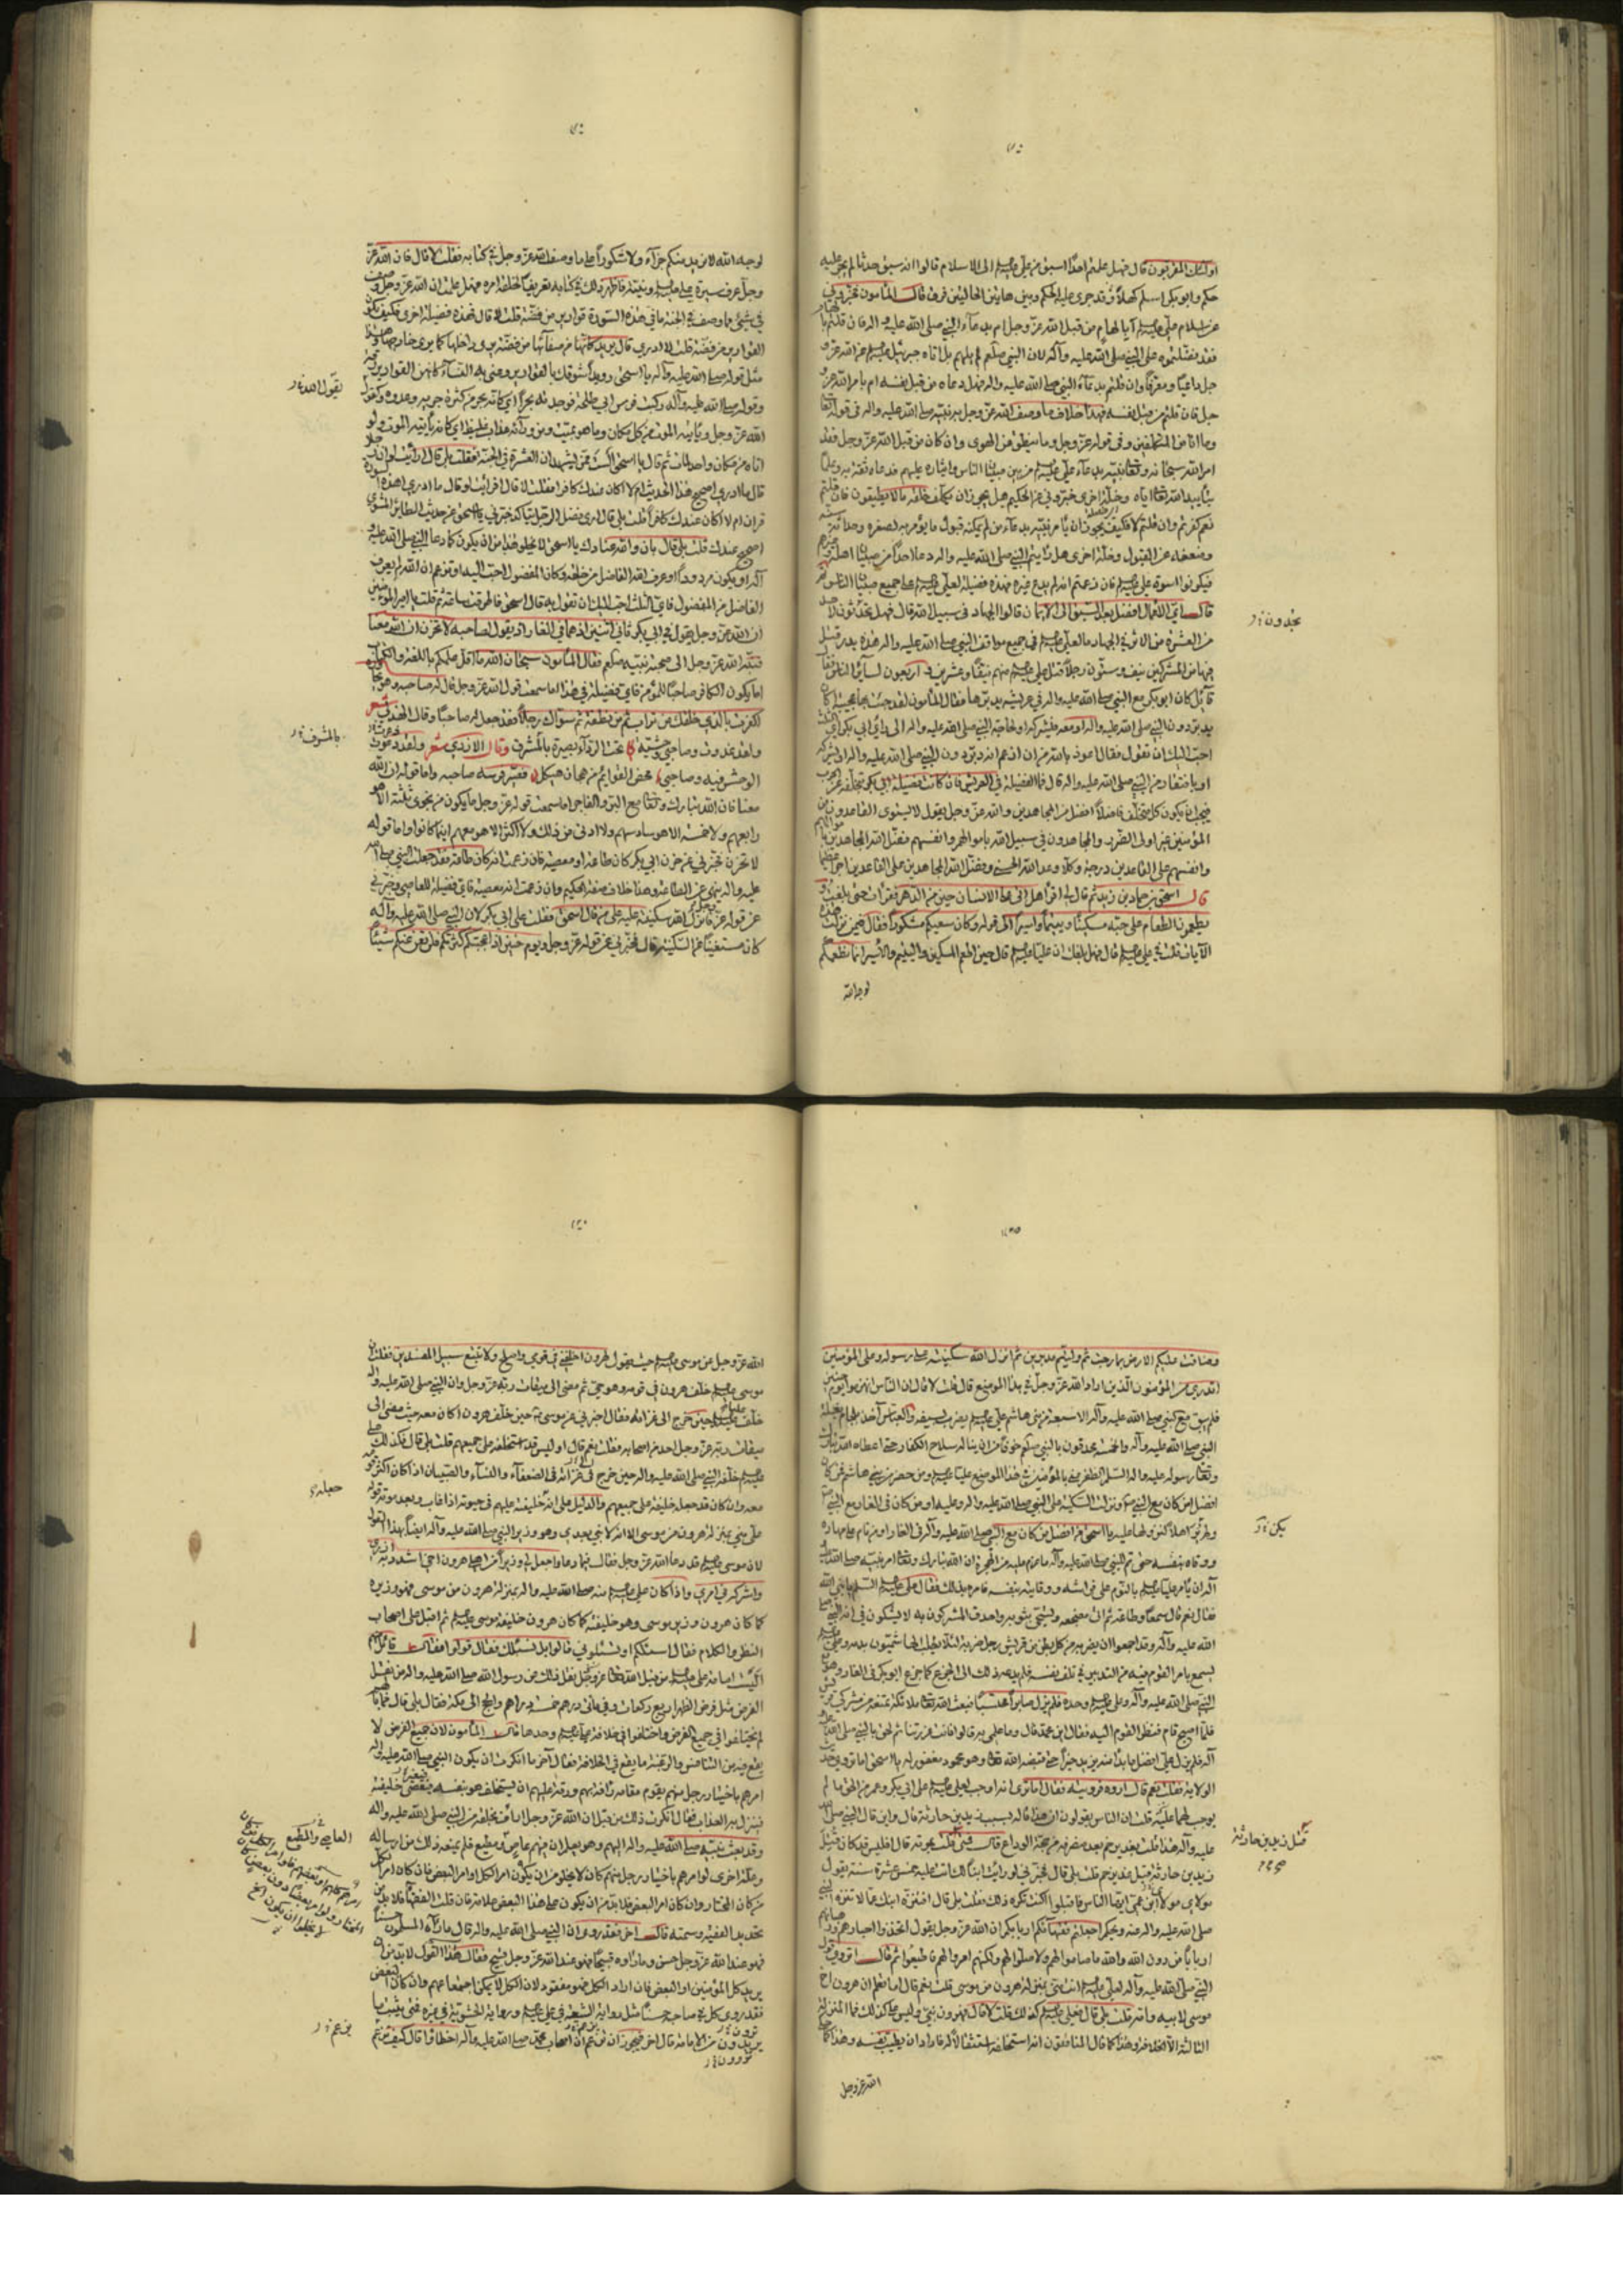 اولئك المقربون قال فهل علمتم احدا اسبق من علي عليه السلم الى الاسلام قالوا انه سبق حدثا لم يجر عليه
حكم وابو بكر اسلم كهلا قد جرى عليه الحكم وبين هاتين الحالتين فرق قال المأمون فخبروني
عن اسلام علي عليه السلم أبالهام من قبل الله عز وجل ام بدعاء النبي صلى الله عليه واله فان قلتم
فقد فضلتموه على النبي صلى الله عليه وآله لان النبي صلعم لم يلهم بل اتاه جبرئيل عن الله عز و
جل داعيا ومعرفا وان قلتم بدعاء النبي صلى الله عليه واله فهل دعاه من قبل نفسه ام بامر الله عز و
جل فان قلتم من قبل نفسه فهذا خلاف ما وصف الله عز وجل به نبيه صلى الله عليه واله في قوله
وما انا من المتكلفين وفي قوله عز وجل وما ينطق عن الهوى وان كان من قبل الله عز وجل فقد
امر الله سبحانه وتعالى نبيه بدعاء علي من بين صبيان الناس وايثاره عليهم فدعاه ثقة به وعلما
بتأييد الله تعالى اياه وخلة اخرى خبروني عن الحكيم هل يجوز ان يكلف خلقه ما لا يطيقون فان قلتم
نعم كفرتم وان قلتم لا فكيف يجوز ان يأمر نبيه بدعاء من لم يمكنه قبول ما يؤمر به لصغره وحداثة
وضعفه عن القبول وخلة اخرى هل رأيتم النبي صلى الله عليه واله دعا احدا من صبيان اهله
فيكونوا اسوة علي فان زعمتم انه لم يدع غيره فهذه فضيلة لعلي على جميع صبيان الناس
قال اي الاعمال افضل بعد السبق الى الايمان قالوا الجهاد في سبيل الله قال فهل تحدثون
من العشرة من الاثر في الجهاد ما لعلي في جميع مواقف النبي صلى الله عليه واله هذه بدر قتل
فيها من المشركين نيف وستون رجلا قتل علي منهم نيفا وعشرين و اربعون لسائر الناس
قائل كان ابو بكر مع النبي صلى الله عليه واله في عريشه يدبرها فقال المأمون لقد جئت بها عجيبة
يدبر دون النبي صلى الله عليه واله او معه فيشركه او لحاجة النبي صلى الله عليه واله الى رأي ابي بكر
احب اليك ان تقول فقال اعوذ بالله من ان ازعم انه دبر دون النبي صلى الله عليه واله
او بافتقار من النبي صلى الله عليه واله قال فما الفضيلة في العريش فان كانت فضيلة ابي بكر بتخلفه عن
فيجب ان يكون كل متخلف فاضلا افضل من المجاهدين والله عز وجل يقول لا يستوي القاعدون من
المؤمنين غير اولي الضرر والمجاهدون في سبيل الله باموالهم وانفسهم فضل الله المجاهدين
وانفسهم على القاعدين درجة وكلا وعد الله الحسنى وفضل الله المجاهدين على القاعدين اجرا عظيما
قال اسحق بن حماد بن زيد ثم قال لي اقرأ هل اتى على الانسان حين من الدهر فقرأت حتى بلغت
ويطعمون الطعام على حبه مسكينا ويتيما واسيرا الى قوله وكان سعيكم مشكورا فقال فيمن نزلت
الآيات قلت في علي قال فهل بلغك ان عليا قال حين اطعم المسكين واليتيم والاسير انما نطعمكم
لوجه الله
لوجه الله لا نريد منكم جزاء ولا شكورا على ما وصف الله عز وجل في كتابه فقلت لا قال فان الله عز
وجل عرف سريرة علي ونيته فاظهر ذلك في كتابه تعريفا لخلقه امره فهل علمت ان الله عز وجل وصف
في شيء مما وصف في الجنة ما في هذه السورة قوارير من فضة قلت لا قال فهذه فضيلة اخرى فكيف تكون
القوارير من فضة قلت لا ادري قال يريد كانها من صفائها من فضة يرى داخلها كما يرى خارجها وهذا
مثل قوله صلى الله عليه وآله يا اسحق رويدا سوقك بالقوارير وعنى به النساء كانهن القوارير
وقوله صلى الله عليه وآله ركبت فرس ابي طلحة فوجدته بحرا اي كانه بحر من كثرة جريه وعدوه وكقول
الله عز وجل ويأتيه الموت من كل مكان وما هو بميت ومن ورائه عذاب غليظ اي كانه يأتيه الموت ولو
اتاه من مكان واحد لمات ثم قال يا اسحق الست ممن يشهد ان العشرة في الجنة فقلت بلى قال ارأيت لو ان
قال ما ادري اصحيح هذا الحديث ام لا اكان عندك كافرا فقلت لا قال افرأيت لو قال ما ادري هذه
قران ام لا اكان عندك كافرا قلت بلى قال ارى فضل الرجل يتأكد خبرني يا اسحق عن حديث الطائر المشوي
اصحيح عندك قلت بلى قال بان والله عنادك يا اسحق لا يخلو هذا من ان يكون كما دعا النبي صلى الله عليه و
آله او يكون مردودا او عرف الله الفاضل من خلقه وكان المفضول احب اليه او تزعم ان الله لم يعرف
الفاضل من المفضول فاي الثلث احب اليك ان تقول به قال اسحق فاطرقت ساعة ثم قلت يا امير المؤمنين
ان الله عز وجل يقول في ابي بكر ثاني اثنين اذ هما في الغار اذ يقول لصاحبه لا تحزن ان الله معنا
فنسبه الله عز وجل الى صحبة نبيه صلعم فقال المأمون سبحان الله ما اقل علمكم باللغة والكتاب
اما يكون الكافر صاحبا للمؤمن فاي فضيلة في هذا اما سمعت قول الله عز وجل قال له صاحبه وهو
اكفرت بالذي خلقك من تراب ثم من نطفة ثم سواك رجلا فقد جعله له صاحبا وقال الهذلي شعر
ولقد غدوت وصاحبي وحشية تحت الرداء بصيرة بالمشرف وقال الازدي شعر ولقد دعوت
الوحش فيه وصاحبي محض القوائم من هجان هيكل فصير فرسه صاحبه واما قوله ان الله
معنا فان الله تبارك وتعالى مع البر والفاجر اما سمعت قوله عز وجل ما يكون من نجوى ثلثة الا هو
رابعهم ولا خمسة الا هو سادسهم ولا ادنى من ذلك ولا اكثر الا هو معهم اينما كانوا واما قوله
لا تحزن فخبرني عن حزن ابي بكر كان طاعة او معصية فان زعمت انه كان طاعة فقد جعلت النبي صلى الله
عليه واله ينهى عن الطاعة وهذا خلاف صفة الحكيم وان زعمت انه معصية فاي فضيلة للعاصي وخبرني
عن قوله عز وجل فانزل الله سكينته عليه على من قال اسحق فقلت على ابي بكر لان النبي صلى الله عليه وآله
كان مستغنيا عن السكينة قال فخبرني عن قوله عز وجل ويوم حنين اذ اعجبتكم كثرتكم فلم تغن عنكم شيئا
يقول الله
بالمشرف
وضاقت عليكم الارض بما رحبت ثم وليتم مدبرين ثم انزل الله سكينته على رسوله وعلى المؤمنين
اتدري من المؤمنون الذين اراد الله عز وجل في هذا الموضع قال قلت لا قال ان الناس انهزموا يوم حنين
فلم يبق مع النبي صلى الله عليه وآله الا سبعة من بني هاشم علي يضرب بسيفه والعباس آخذ بلجام بغلة
النبي صلى الله عليه وآله والخمسة محدقون بالنبي صلعم خوفا من ان يناله سلاح الكفار حتى اعطاه الله تبارك
وتعالى رسوله عليه واله السلم الظفر عنى بالمؤمنين في هذا الموضع عليا ومن حضر من بني هاشم فمن كان
افضل امن كان مع النبي ونزلت السكينة على النبي صلى الله عليه واله وعليه او من كان في الغار مع النبي
ولم يكن اهلا لنزولها عليه يا اسحق من افضل من كان مع النبي صلى الله عليه وآله في الغار او من نام على مهاده
ووقاه بنفسه حتى تم للنبي صلى الله عليه وآله ما عزم عليه من الهجرة ان الله تبارك وتعالى امر نبيه صلى الله عليه
آله ان يأمر عليا بالنوم على فراشه ووقايته بنفسه فامره بذلك فقال علي اتسلم يا نبي الله
فقال نعم قال سمعا وطاعة ثم اتى مضجعه وتسجى بثوبه واحدق المشركون به لا يشكون في انه النبي صلى
الله عليه وآله وقد اجمعوا ان يضربه من كل بطن من قريش رجل ضربة لئلا يطلب الهاشميون بدمه وعلي
يسمع بامر القوم فيه من التدبير في تلف نفسه فلم يدعه ذلك الى الجزع كما جزع ابو بكر في الغار وهو مع
النبي صلى الله عليه وآله وعلي وحده فلم يزل صابرا محتسبا فبعث الله تعالى ملائكة تمنعه من مشركي
فلما اصبح قام فنظر القوم اليه فقالوا اين محمد قال وما علمي به قالوا فانت غررتنا ثم لحق بالنبي صلى الله عليه
آله فلم يزل علي افضل ما بدا منه يزيد خيرا حتى قبضه الله تعالى وهو محمود مغفور له يا اسحق اما تروي حديث
الولاية فقلت نعم قال اروه فرويته فقال اما ترى انه اوجب لعلي على ابي بكر وعمر من الحق ما لم
يوجب لهما عليه قلت ان الناس يقولون ان هذا قاله بسبب زيد بن حارثة قال واين قال النبي صلى الله
عليه وآله هذا قلت بغدير خم بعد منصرفه من حجة الوداع قال فمتى قتل زيد بن حارثة قلت بموته قال افليس قد كان قتل
زيد بن حارثة قبل غدير خم قلت بلى قال فخبرني لو رأيت ابنا لك اتت عليه خمس عشرة سنة يقول
مولاي مولا ابن عمي ايها الناس فاقبلوا اكنت تكره ذلك فقلت بلى قال افتنزه ابنك عما لا تنزه النبي
صلى الله عليه واله عنه ويحكم اجعلتم فقهاءكم اربابكم ان الله عز وجل يقول اتخذوا احبارهم ورهبانهم
اربابا من دون الله والله ما صاموا لهم ولا صلوا لهم ولكنهم امروا لهم فاطيعوا ثم قال اتروي قول
النبي صلى الله عليه وآله لعلي انت مني بمنزلة هرون من موسى قلت نعم قال اما تعلم ان هرون اخ
موسى لابيه وامه قلت بلى قال فعلي كذلك قلت لا قال فهرون نبي وليس علي كذلك فما المنزلة
الثالثة الا الخلافة وهذا كما قال المنافقون انه استخلفه استثقالا له فاراد ان يطيب نفسه وهذا كما
الله عز وجل
قتل زيد بن حارثة
يكن
الله عز وجل عن موسى حيث يقول لهرون اخلفني في قومي واصلح ولا تتبع سبيل المفسدين فقلت ان
موسى خلف هرون في قومه وهو حي ثم مضى الى ميقات ربه عز وجل وان النبي صلى الله عليه واله
خلف عليا حين خرج الى غزاته فقال اخبرني عن موسى حين خلف هرون اكان معه حيث مضى الى
ميقات ربه عز وجل احد من اصحابه فقلت نعم قال او ليس قد استخلفه على جميعهم قلت بلى قال فكذلك علي
خلفه النبي صلى الله عليه واله حين خرج في غزاته في الضعفاء والنساء والصبيان اذ كان اكثر قومه
معه وان كان قد جعله خليفة على جميعهم والدليل على انه خليفة عليهم في حيوته اذا غاب وبعد موته قوله
علي مني بمنزلة هرون من موسى الا انه لا نبي بعدي وهو وزير النبي صلى الله عليه وآله ايضا بهذا القول
لان موسى قد دعا الله عز وجل فقال فيما دعا واجعل لي وزيرا من اهلي هرون اخي اشدد به ازري
واشركه في امري واذا كان علي منه صلى الله عليه واله بمنزلة هرون من موسى فهو وزيره
كما كان هرون وزير موسى وهو خليفته كما كان هرون خليفة موسى ثم اقبل على اصحاب
النظر والكلام فقال اسئلكم او تسئلوني قالوا بل نسئلك فقال قولوا فقال قائل منهم
اليست امامة علي من قبل الله عز وجل نقل ذلك عن رسول الله صلى الله عليه واله من نقل
الفرض مثل فرض الظهر اربع ركعات وفي مائتي درهم خمسة دراهم والحج الى مكة فقال بلى قال فما بالهم
لم يختلفوا في جميع الفرض واختلفوا في خلافة علي وحدها قال المأمون لان جميع الفرض لا
يقع فيه من التنافس والرغبة ما يقع في الخلافة فقال آخر ما انكرت ان يكون النبي صلى الله عليه واله
امرهم باختيار رجل منهم يقوم مقامه رأفة بهم ورقة عليهم ان يستخلف هو بنفسه فيعصى خليفته
فينزل بهم العذاب فقال انكرت ذلك من قبل ان الله عز وجل ارأف بخلقه من النبي صلى الله عليه واله
وقد بعث نبيه صلى الله عليه واله اليهم وهو يعلم ان منهم عاص ومطيع فلم يمنعه ذلك من ارساله
وعلة اخرى لو امرهم باختيار رجل منهم كان لا يخلو من ان يكون امر الكل او امر البعض فان كان امر الكل
من كان المختار وان كان امر البعض فلا بد من ان يكون على هذا البعض علامة فان قلت الفقهاء فلا بد من
تحديد الفقيه وسمته قال اخر فقد روي ان النبي صلى الله عليه واله قال ما رآه المسلمون حسنا
فهو عند الله عز وجل حسن وما رأوه قبيحا فهو عند الله عز وجل قبيح فقال هذا القول لا بد من ان
يريد كل المؤمنين او البعض فان اراد الكل فهو مفقود لان الكل لا يمكن اجتماعهم وان كان البعض
فقد روى كل في صاحبه حسنا مثل رواية الشيعة في علي ورواية الحشوية في غيره فمتى يثبت ما
يريدون من الامامة قال اخر فيجوز ان تزعم ان اصحاب محمد صلى الله عليه وآله اخطاؤا قال كيف نزعم
العاصي والمطيع